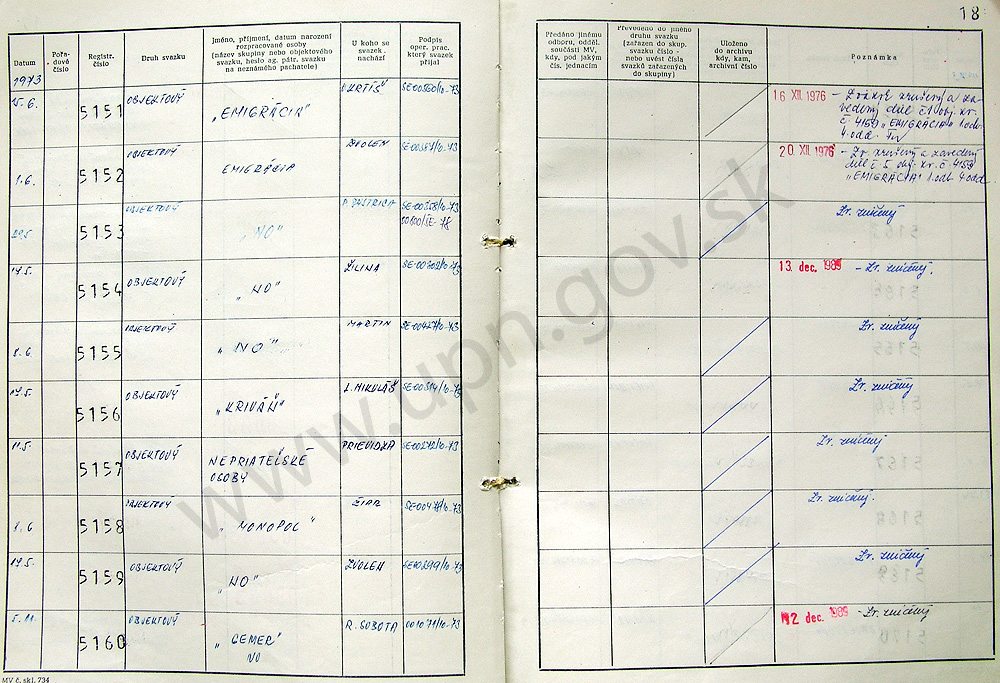 18
Datum
Pořa-
dové
číslo
Registr.
číslo
Druh svazku
Jméno, příjmení, datum narození
rozpracované osoby
(název skupiny nebo objektového
svazku, heslo ag. pátr. svazku
na neznámého pachatele)
U koho se
svazek
nachází
Podpis
oper. prac.
který svazek
přijal
Předáno jinému
odboru, odděl.
součásti MV,
kdy, pod jakým
čís. jednacím
Převedeno do jiného
druhu svazku
(zařazen do skup.
svazku číslo -
nebo uvést čísla
svazků zařazených
do skupiny)
Uloženo
do archivu
kdy, kam,
archivní číslo
Poznámka
1973
15.6. 5151 OBJEKTOVÝ „EMIGRÁCIA" KRTÍŠ
16 XII. 1976 - Zväzok zrušený a za-
vedený diel č. obj. zv.
č. 4159 „EMIGRÁCIA" 1.odb.
4.odd.
1.6. 5152 OBJEKTOVÝ EMIGRÁCIA ZVOLEN
20. XII. 1976 - Zv. zrušený a zavedený
diel č. 5 obj. zv. č. 4159
„EMIGRÁCIA" 1.odb. 4.odd.
5153 OBJEKTOVÝ „NO" B. BYSTRICA SE-00358/10-73
Zv. zničený
17.5. 5154 OBJEKTOVÝ „NO" ŽILINA SE-00302/10-73
13. dec. 1989 - Zv. zničený.
1.6. 5155 OBJEKTOVÝ „NO" MARTIN SE-00427/10-73
Zv. zničený
17.5. 5156 OBJEKTOVÝ „KRIVÁŇ" L. MIKULÁŠ SE-00314/10-73
Zv. zničený
11.5. 5157 OBJEKTOVÝ NEPRIATEĽSKÉ
OSOBY
PRIEVIDZA SE-00272/10-73
Zv. zničený
1.6 5158 OBJEKTOVÝ „MONOPOL" ŽIAR
Zv. zničený.
17.5. 5159 OBJEKTOVÝ „NO" ZVOLEN SE-00299/10-73
Zv. zničený
5.11. 5160 OBJEKTOVÝ „GEMER"
NO
R. SOBOTA 001071/10-73
12 dec. 1989 - Zv. zničený
MV č. skl. 734
www.upn.gov.sk